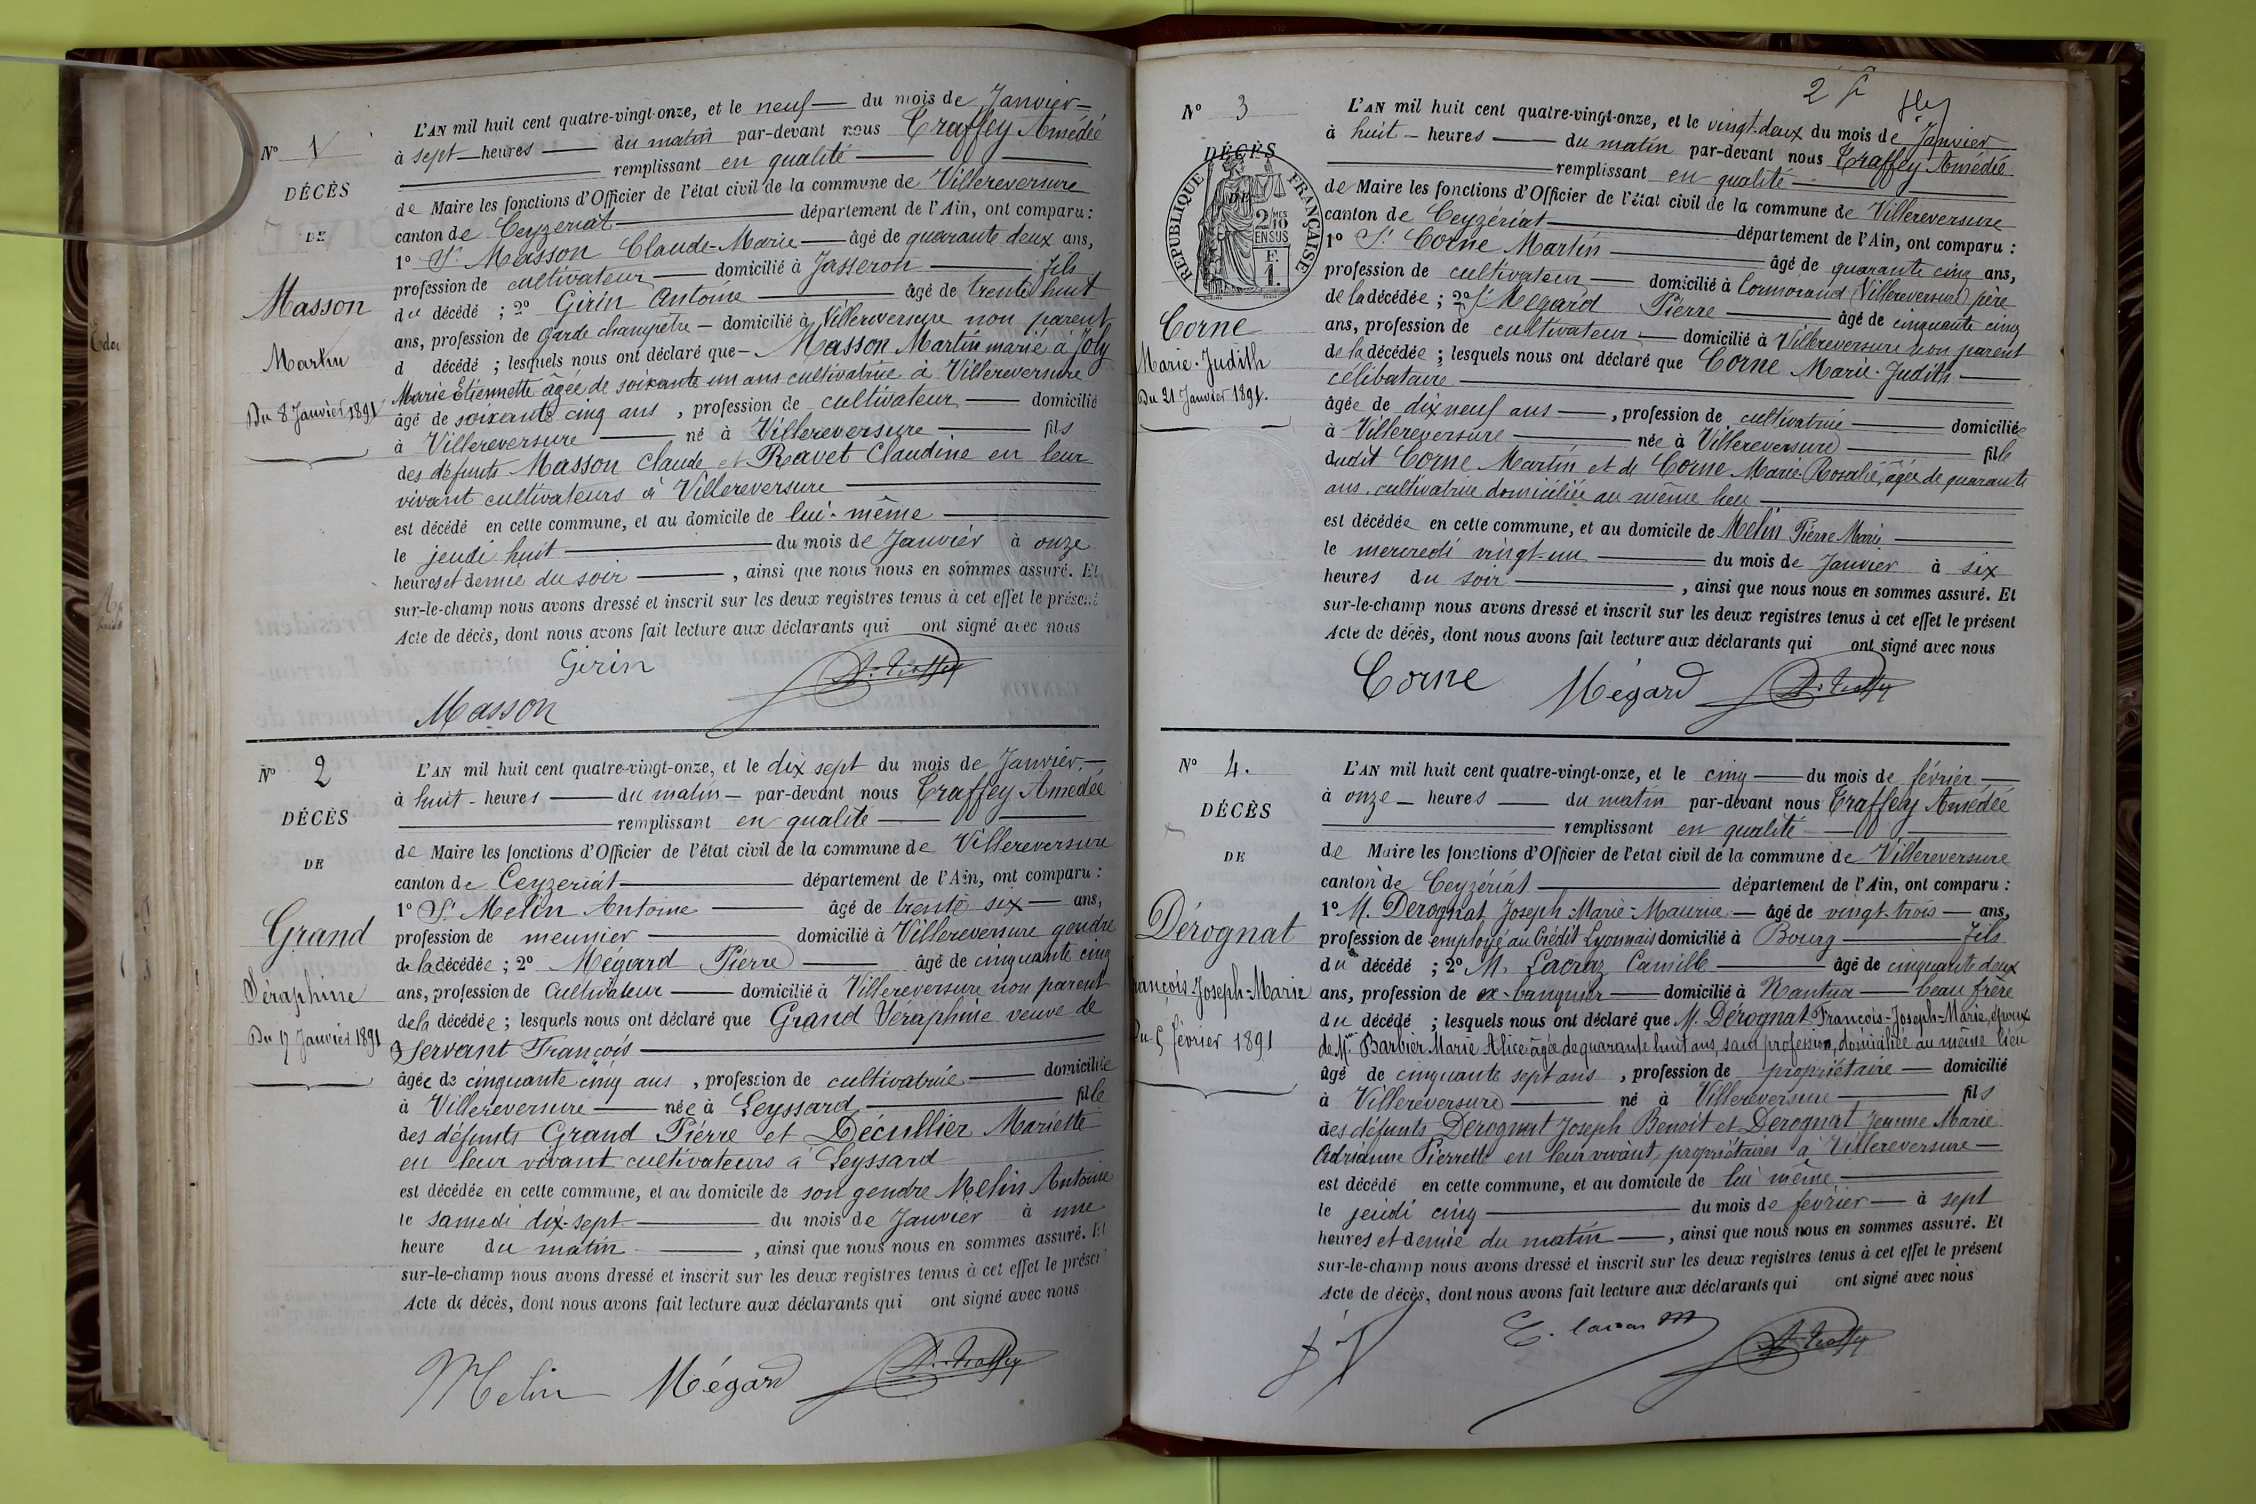 N° 1
DÉCÈS
DE
Masson
Martin
Du 8 Janvier 1891
L'AN mil huit cent quatre-vingt-onze, et le neuf du mois de Janvier
à sept heures du matin par-devant nous Traffey Amédée
remplissant en qualité
de Maire les fonctions d'Officier de l'état civil de la commune de Villereversure
canton de Ceyzeriat département de l'Ain, ont comparu :
1° Sr Masson Claude-Marie âgé de quarante deux ans,
profession de cultivateur domicilié à Jasseron fils
du décédé ; 2° Girin Antoine âgé de trente huit
ans, profession de garde champêtre domicilié à Villereversure non parent
d décédé ; lesquels nous ont déclaré que Masson Martin marié à Joly
Marie Etiennette âgée de soixante un ans cultivatrice à Villereversure
âgé de soixante cinq ans, profession de cultivateur domicilié
à Villereversure né à Villereversure fils
des défunts Masson Claude et Ravet Claudine en leur
vivant cultivateurs à Villereversure
est décédé en cette commune, et au domicile de lui-même
le jeudi huit du mois de Janvier à onze
heures et demie du soir, ainsi que nous nous en sommes assuré. Et
sur-le-champ nous avons dressé et inscrit sur les deux registres tenus à cet effet le présent
Acte de décès, dont nous avons fait lecture aux déclarants qui ont signé avec nous
Girin
A. Traffey
Masson
N° 2
DÉCÈS
DE
Grand
Séraphine
Du 17 Janvier 1891
L'AN mil huit cent quatre-vingt-onze, et le dix sept du mois de Janvier
à huit heures du matin par-devant nous Traffey Amédée
remplissant en qualité
de Maire les fonctions d'Officier de l'état civil de la commune de Villereversure
canton de Ceyzeriat département de l'Ain, ont comparu :
1° Sr Melin Antoine âgé de trente six ans,
profession de meunier domicilié à Villereversure gendre
de la décédée ; 2° Mégard Pierre âgé de cinquante cinq
ans, profession de Cultivateur domicilié à Villereversure non parent
de la décédée ; lesquels nous ont déclaré que Grand Séraphine veuve de
Servant François
âgée de cinquante cinq ans, profession de cultivatrice domiciliée
à Villereversure née à Leyssard fille
des défunts Grand Pierre et Décullier Mariette
en leur vivant cultivateurs à Leyssard
est décédée en cette commune, et au domicile de son gendre Melin Antoine
le samedi dix-sept du mois de Janvier à une
heure du matin, ainsi que nous nous en sommes assuré. Et
sur-le-champ nous avons dressé et inscrit sur les deux registres tenus à cet effet le présent
Acte de décès, dont nous avons fait lecture aux déclarants qui ont signé avec nous
Melin Mégard A. Traffey
2
N° 3
DÉCÈS
DE
RÉPUBLIQUE FRANÇAISE
2/10MES
EN SUS
F.
1.
Corne
Marie-Judith
Du 21 Janvier 1891.
L'AN mil huit cent quatre-vingt-onze, et le vingt-deux du mois de Janvier
à huit heures du matin par-devant nous Traffey Amédée
remplissant en qualité
de Maire les fonctions d'Officier de l'état civil de la commune de Villereversure
canton de Ceyzériat département de l'Ain, ont comparu :
1° Sr Corne Martin âgé de quarante cinq ans,
profession de cultivateur domicilié à Cormorand (Villereversure) père
de la décédée ; 2° Sr Mégard Pierre âgé de cinquante cinq
ans, profession de cultivateur domicilié à Villereversure non parent
de la décédée ; lesquels nous ont déclaré que Corne Marie-Judith
célibataire
âgée de dix neuf ans, profession de cultivatrice domiciliée
à Villereversure née à Villereversure fille
dudit Corne Martin et de Corne Marie-Rosalie, âgée de quarante
ans, cultivatrice domiciliée au même lieu
est décédée en cette commune, et au domicile de Melin Pierre Marie
le mercredi vingt-un du mois de Janvier à six
heures du soir, ainsi que nous nous en sommes assuré. Et
sur-le-champ nous avons dressé et inscrit sur les deux registres tenus à cet effet le présent
Acte de décès, dont nous avons fait lecture aux déclarants qui ont signé avec nous
Corne Mégard A. Traffey
N° 4.
DÉCÈS
DE
Dérognat
François-Joseph-Marie
Du 5 février 1891
L'AN mil huit cent quatre-vingt-onze, et le cinq du mois de février
à onze heures du matin par-devant nous Traffey Amédée
remplissant en qualité
de Maire les fonctions d'Officier de l'état civil de la commune de Villereversure
canton de Ceyzériat département de l'Ain, ont comparu :
1° M. Derognat Joseph-Marie-Maurice âgé de vingt-trois ans,
profession de employé au Crédit Lyonnais domicilié à Bourg fils
du décédé ; 2° M. Lacraz Camille âgé de cinquante deux
ans, profession de ex-banquier domicilié à Nantua beau frère
du décédé ; lesquels nous ont déclaré que M. Dérognat François-Joseph-Marie, époux
de Mme Barbier Marie Alice âgée de quarante huit ans, sans profession, domiciliée au même lieu
âgé de cinquante sept ans, profession de propriétaire domicilié
à Villereversure né à Villereversure fils
des défunts Derognat Joseph Benoit et Derognat Jeanne Marie
Adrianne Pierrette en leur vivant, propriétaires à Villereversure
est décédé en cette commune, et au domicile de lui même
le jeudi cinq du mois de février à sept
heures et demie du matin, ainsi que nous nous en sommes assuré. Et
sur-le-champ nous avons dressé et inscrit sur les deux registres tenus à cet effet le présent
Acte de décès, dont nous avons fait lecture aux déclarants qui ont signé avec nous
A. Traffey